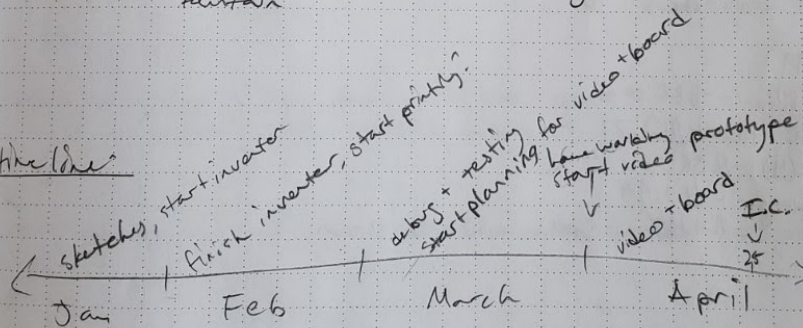 timeline:
sketches, start inventor
finish inventer, start printing.
debug + testing
start planning for video + board
have working prototype
start video
video + board
I.C.
25
Jan
Feb
March
April